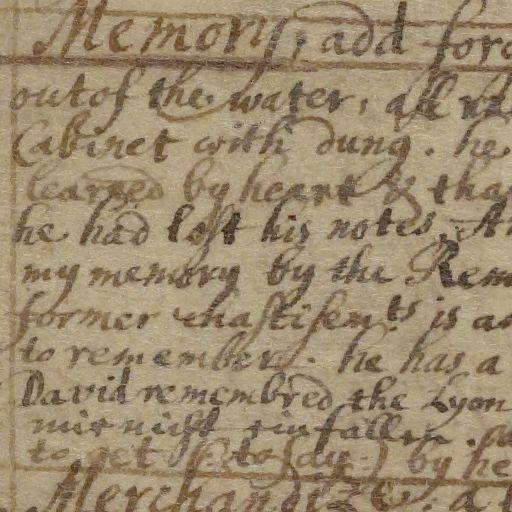 Memory, add forc
out of the water, aſſ th
Cabinet with dung. he
learned by heart & tha
he had loſt his notes, An
my memory by the Rem
former chaſtiſem.ts is an
to remember. he has a
David remembred the Lyon
to get (ſ. to ſay.) by he
Merchandize. a